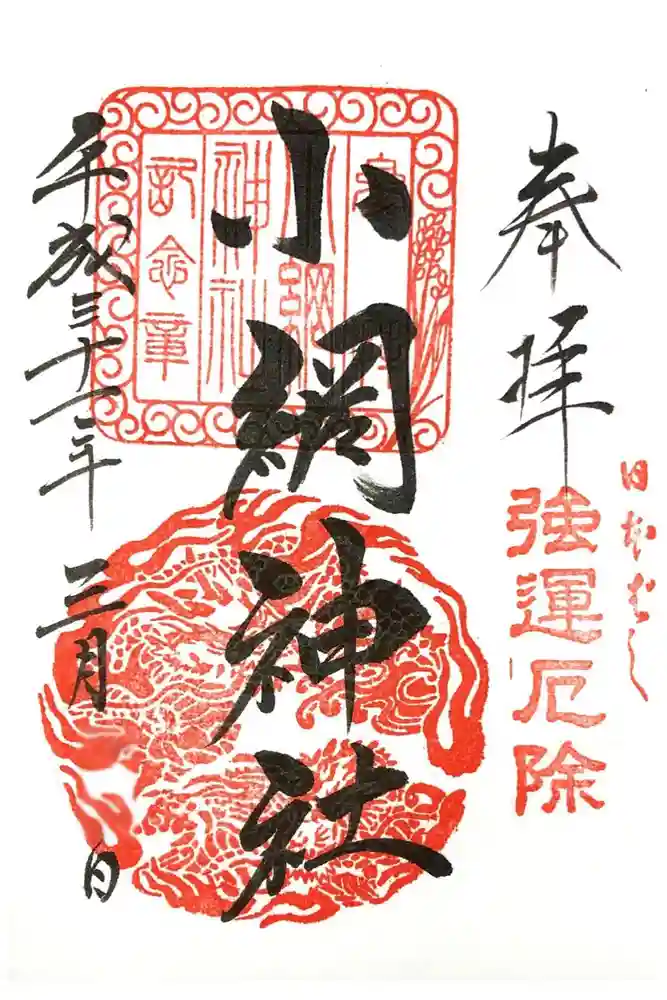 奉拝
日本ばし
強運厄除
小網神社
小網
神社
記念章
平成三十一年三月 日